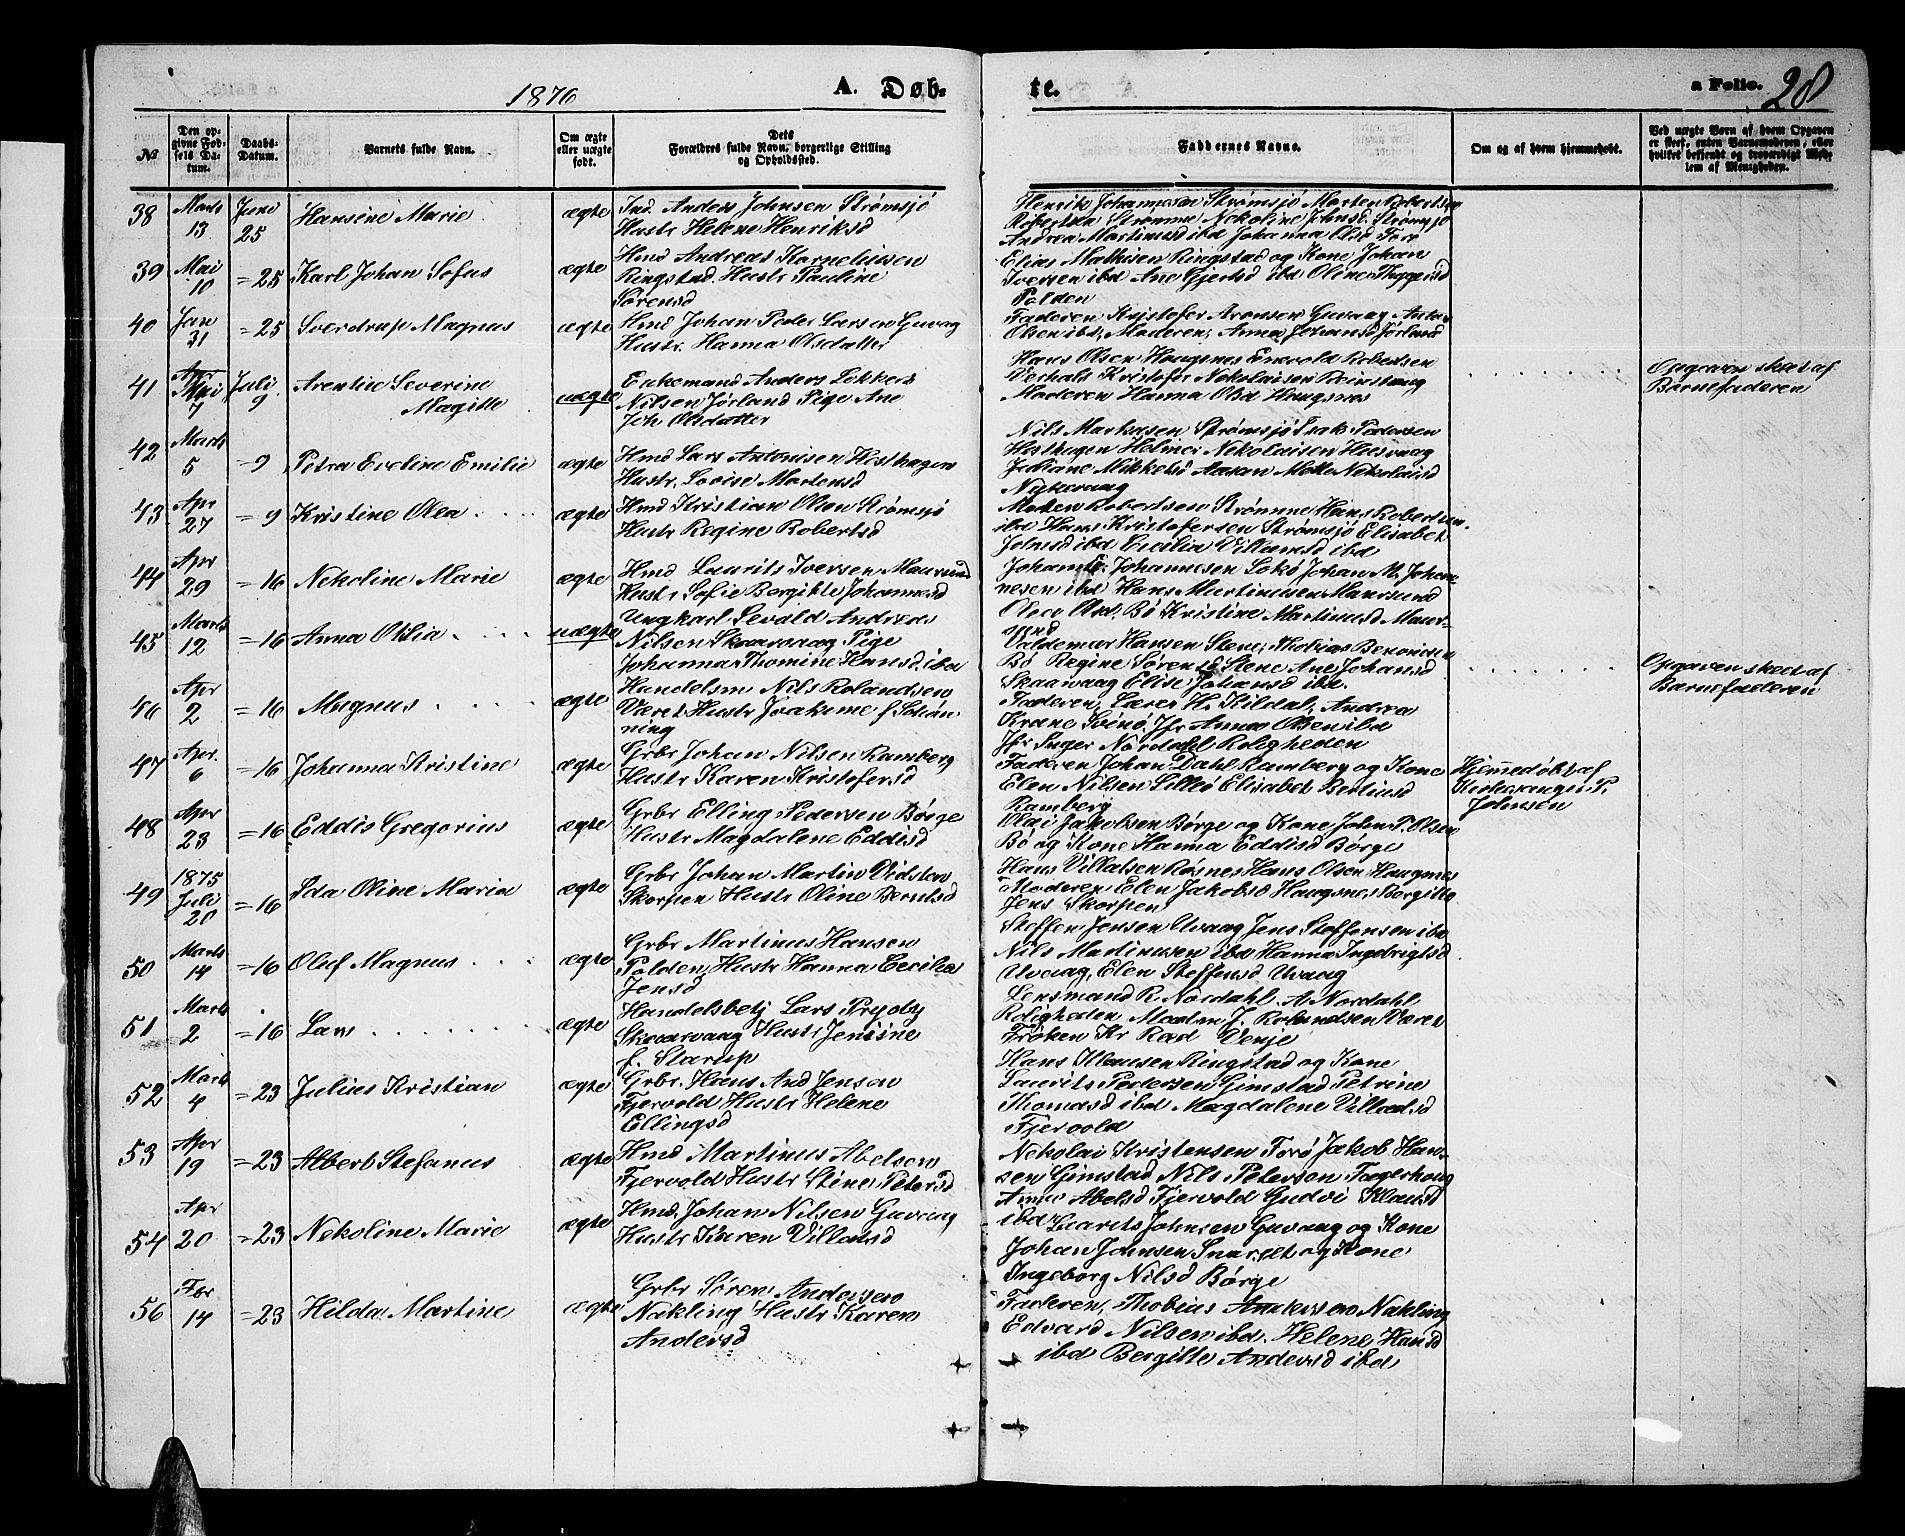 1876
A. Døb-
te.
a Folio. 28
№
Den op-
givne Fød-
sels Da-
tum.
Daabs-
Datum.
Barnets fulde Navn.
Om ægte
eller uægte
født.
Dets
Forældres fulde Navn, borgerlige Stilling
og Opholdssted.
Faddernes Navne.
Om og af hvem hjemmedøbt.
Ved uægte Børn af hvem Opgaven
er skeet, enten Barnemoderen, eller
hvilket bekjendt og troværdigt Med-
lem af Menigheden.
38 Marts 13 Juni 25 Hansine Marie ægte
Ind. Anders Johnsen Strømsjö
Hustr Helene Henriksd
Henrik Johannesen Strömsjö Morten Robertsen
Strømme Nekoline Johnsd. Strömsjö
Andrea Martinusd ibd Johanna Olsd
39 Mai 10 = 25 Karl Johan Sofus ægte
Hmd Andreas Korneliussen
Ringstad. Hustr Pauline
Sörensd
Elias Mathisen Ringstad og Kone Johan
Iversen ibd Ane Gjertsd ibd Oline
Polden
40 Jan 31 = 25 Sverdrup Magnus ægte
Hmd Johan Peder Larsen Guvaag
Hustr. Hanna Olsdatter
Faderen Kristofer Aronsen Guvaag Anton
Olsen ibd, Moderen, Anna Johansd Jörland
41 Juli 9 Arentine Severine
Magitte uægte
Enkemand Anders Lökkers
Nilsen Jörland Pige Ane
Joh Olsdatter
Hans Olsen Haugsnes Enevold Robertsen
Verhals Kristofer Nekolaisen Reinsvaag
Moderen Hanna Olsd Haugsnes
Opgaven skeet af
Barnefaderen
42 Marts 5 = 9 Petra Eveline Emilie ægte
Hmd Lars Antonisen Hesthagen
Hustr. Lovise Martensd
Nils Markusen Strömsjö Isak Pedersen
Hesthagen Helmer Nekolaisen
Juliane Mikkelsd Aasan Mette Nekolaisd
Nykvaag
43 Apr 27 = 9 Kristine Olea ægte
Hmd Kristian Olsen Strömsjö
Hustr Regine Robertsd
Morten Robertsen Strömme Hans Robertsen
ibd Hans Kristofersen Strömsjö Elisabet
Johnsd ibd Cecilia Villumsd ibd
44 Apr 29 = 16 Nekoline Marie ægte
Hmd Laurits Iversen Maursund
Hustr Sofie Bergitte Johannesd
Johannesen Lokö Johan M. Johan
nesen ibd Hans Martinusen Maursund
Olea Olsd. Bö Kristine Martinusd Maur-
sund
45 Marts 12 = 16 Anna Otilia uægte
Ungkarl Sevald Andreas
Nilsen Skaarvaag Pige
Johanna Thomine Hansd, ibd
Valdemar Hansen Stene, Thobias Benonisen
Bö Regine Sörensd Stene Ane Johansd
Skaarvaag Elise Johansd ibd.
Opgaven skeet af
Barnefaderen
46 Apr 2 = 16 Magnus ægte
Handelsm Nils Rolandsen
Været Hustr Joakime f Schøn
ning
Faderen, Lærer H. Kildal, Andrea
Krane Svinö, Jfr Anna Olsen ibd
Jfr Inger Nordahl Roligheden
47 Apr. 6 = 16 Johanna Kristine ægte
Grbr Johan Nilsen Ramberg
Hustr Karen Kristofersd
Faderen Johan Dahl Ramberg og Kone
Elen Nilsen Lillö Elisabet Bertinsd
Ramberg
Hjemmedöbt af
Kirkesanger P.
Johnsen
48 Apr 23 = 16 Eddis Gregorius ægte
Grbr Elling Pedersen Børge
Hustr Magdalene Eddisd
Olai Jakobsen Börge og Kone John P. Olsen
Bö og Kone Hanna Eddisd Börge
49 1875 Juli 20 = 16 Ida Oline Maria ægte
Grbr Johan Martin Vidsten
Skorpen Hustr Oline Berntsd
Hans Villatsen Røsnes Hans Olsen Haugsnes
Moderen Elen Jakobsd Haugsnes Bergitte
Jens Skorpen
50 Marts 14 = 16 Oluf Magnus ægte
Grbr Martinus Hansen
Polden, Hustr Hanna Cecilia
Jensd
Steffen Jensen Uvaag Jens Steffensen ibd
Nils Martinusen ibd Hanna Ingebrigtsd
Uvaag, Elen Steffensd Uvaag
51 Marts 2 = 16 Lars ægte
Handelsbetj Lars Prydz
Skaarvaag Hustr. Jensine
f. Starup
Lensmand R. Nordahl. A Nordahl
Roligheden Madm J. Rolandsen Været
Frøken Kr Rad Venje
52 Marts 4 = 23 Julius Kristian ægte
Grbr. Hans And Jensen
Fjervold Hustr Helene
Ellingsd
Hans Clausen Ringstad og Kone
Laurits Pedersen Gimstad Petrine
Thomasd ibd Magdalene Villadsd
Fjervold
53 Apr 19 = 23 Albert Stefanus ægte
Hmd Martinus Abelsen
Fjervold Hustr Stine Petersd
Nekolai Kristensen Forö Jakob Han-
sen Gimstad Nils Petersen Fagerhaug
Anne Abelsd Fjervold Gudvi Klausd
ibd
54 Apr 20 = 23 Nekoline Marie ægte
Hmd. Johan Nilsen Guvaag
Hustr Karen Villumsd
Laurits Johnsen Guvaag og Kone
Johan Johnsen Snarset og Kone
Ingeborg Nilsd Börge
56 Feb 14 = 23 Hilda Martine ægte
Grbr Sören Andersen
Nakling Hustr Karen
Andersd
Faderen, Thobias Andersen Nakling
Edvard Nilsen ibd. Helene Hansd
ibd Bergitte Andersd ibd